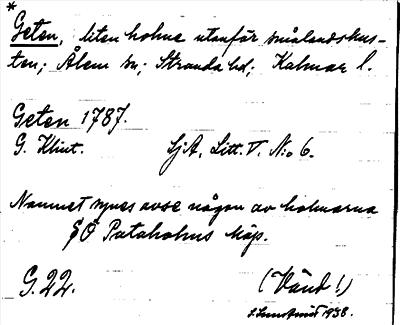 *
Geten, liten holme utanför smålandskus-
ten; Ålem sn; Stranda hd; Kalmar l.
Geten 1787.
G. Klint. SjA, Litt. V. No 6.
Namnet synes avse någon av holmarna
SÖ Pataholms köp.
G. 22. (Vänd!)
1938.